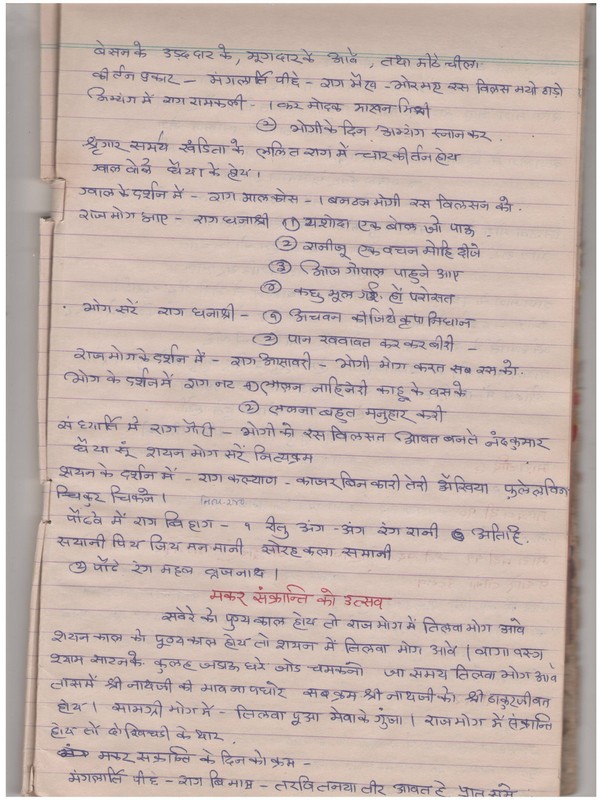 बेसनके उड़ददार के, मूगदारके आवें, तथा मीठे चीला
कीर्तन प्रकार - मंगलार्ति पीछे - राग भैरव - भोरभए रस विलस भयो ठाड़ो
अभ्यंग में राग रामकली - १ कर मोदक माखन मिश्री
② भोगीके दिन अभ्यंग स्नान कर.
श्रृंगार समय खंडिता के ललित राग में चार कीर्तन होय
ग्वाल बोले धैया के होय।
ग्वाल के दर्शन में - राग मालकोस - १ बनठन भोगी रस विलसन को.
राजभोग आए - राग धनाश्री ① यशोदा एक बोल जो पाऊं
② रानीजू एक वचन मोहि दीजे
③ आज गोपाल पाहुने आए
④ कछु भूल गई हों परोसत
भोग सरें राग धनाश्री - ① अचवन कीजिये कृपा निधान
② पान खवावत कर कर बीरी -
राजभोग के दर्शन में - राग आसावरी - भोगी भोग करत सब रस को.
भोग के दर्शन में राग नट ① लालन नाहिनेरी काहू के वस के
② ललना बहुत मनुहार करी
संध्यार्ति में राग गौरी - भोगी को रस विलसत आवत बनते नंदकुमार
धैया सूं शयन भोग सरें नित्यक्रम
शयन के दर्शन में - राग कल्याण - काजर बिन कारी तेरी अँखिया फुलेल बिन
चिकुर चिकने।
पौढवे में राग बिहाग - १ रीतु अंग - अंग रंग रानी अतिहि
सयानी पिय जिय मन मानी सोरह कला समानी
② पौढे रंग महल व्रजनाथ।
मकर संक्रान्ति को उत्सव
सवेरे को पुण्य काल होय तो राजभोग में तिलवा भोग आवे
शयनकाल को पुण्य काल होय तो शयन में तिलवा भोग आवें। वागा वस्त्र
श्याम साटनके कुलह जड़ाऊ धरे जोड़ चमकनो जा समय तिलवा भोग आवे
तासमें श्री नाथजी की भावना पधारे सब क्रम श्री नाथजी को श्री ठाकुरजीवत
होय। सामग्री भोग में - तिलवा पूआ मेवाके गुंजा। राजभोग में संक्रान्ति
होय तो दो खिचड़ी के थार.
मकर संक्रान्ति के दिन को क्रम -
मंगलार्ति पीछे - राग विभास - तरणि तनया तीर आवत हे प्रात समे